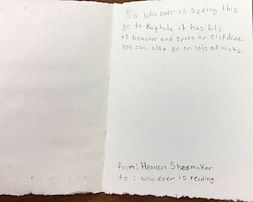 So who ever is seeing this
go to Bayhide it has lots
of beaches and spots to cliff dive.
You can also go on lots of hicks.
from: Heaven Shoemaker
to: who ever is reading